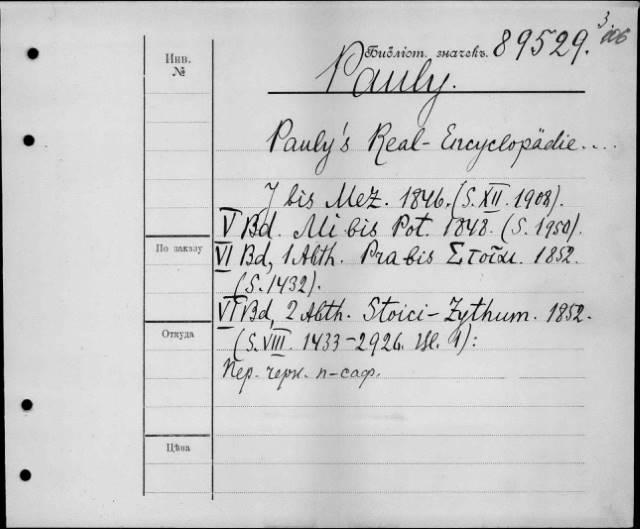 Инв.
№
Библіот. значекъ. 89529. 3
Pauly.
Pauly's Real-Encyclopädie...
J bis Mez. 1846. (S. XII. 1908).
V Bd. Mi bis Pot. 1848. (S. 1950).
По заказу
VI Bd, 1 Abth. Pra bis Στοῖχι. 1852.
(S. 1432).
VI Bd, 2 Abth. Stoici-Zythum. 1852.
Откуда
(S. VIII. 1433-2926.
Пер. черн. п-саф.
Цѣна